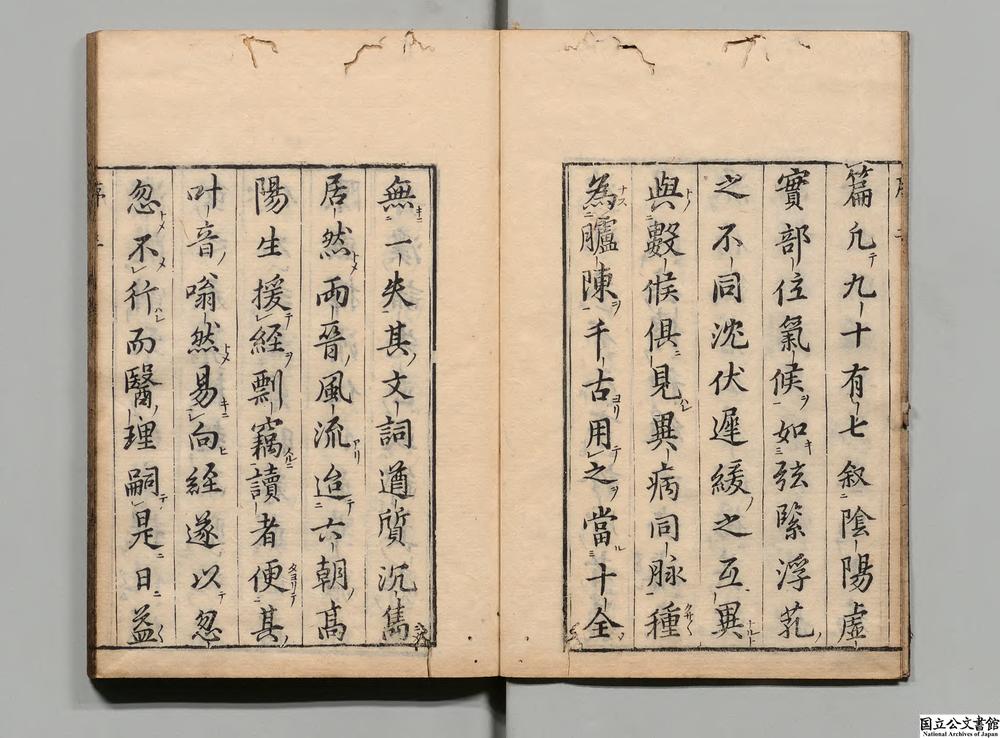 篇凢九十有七叙陰陽虛
實部位氣候如弦緊浮芤
之不同沈伏遲緩之互異
與數候俱見異病同脉種
為臚陳千古用之當十全
無一失其文詞遒質沉雋
居然兩晉風流迨六朝高
陽生援経剽竊讀者便其
叶音嗡然易向経遂以忽
忽不行而醫理嗣是日益
序
国立公文書館
National Archives of Japan